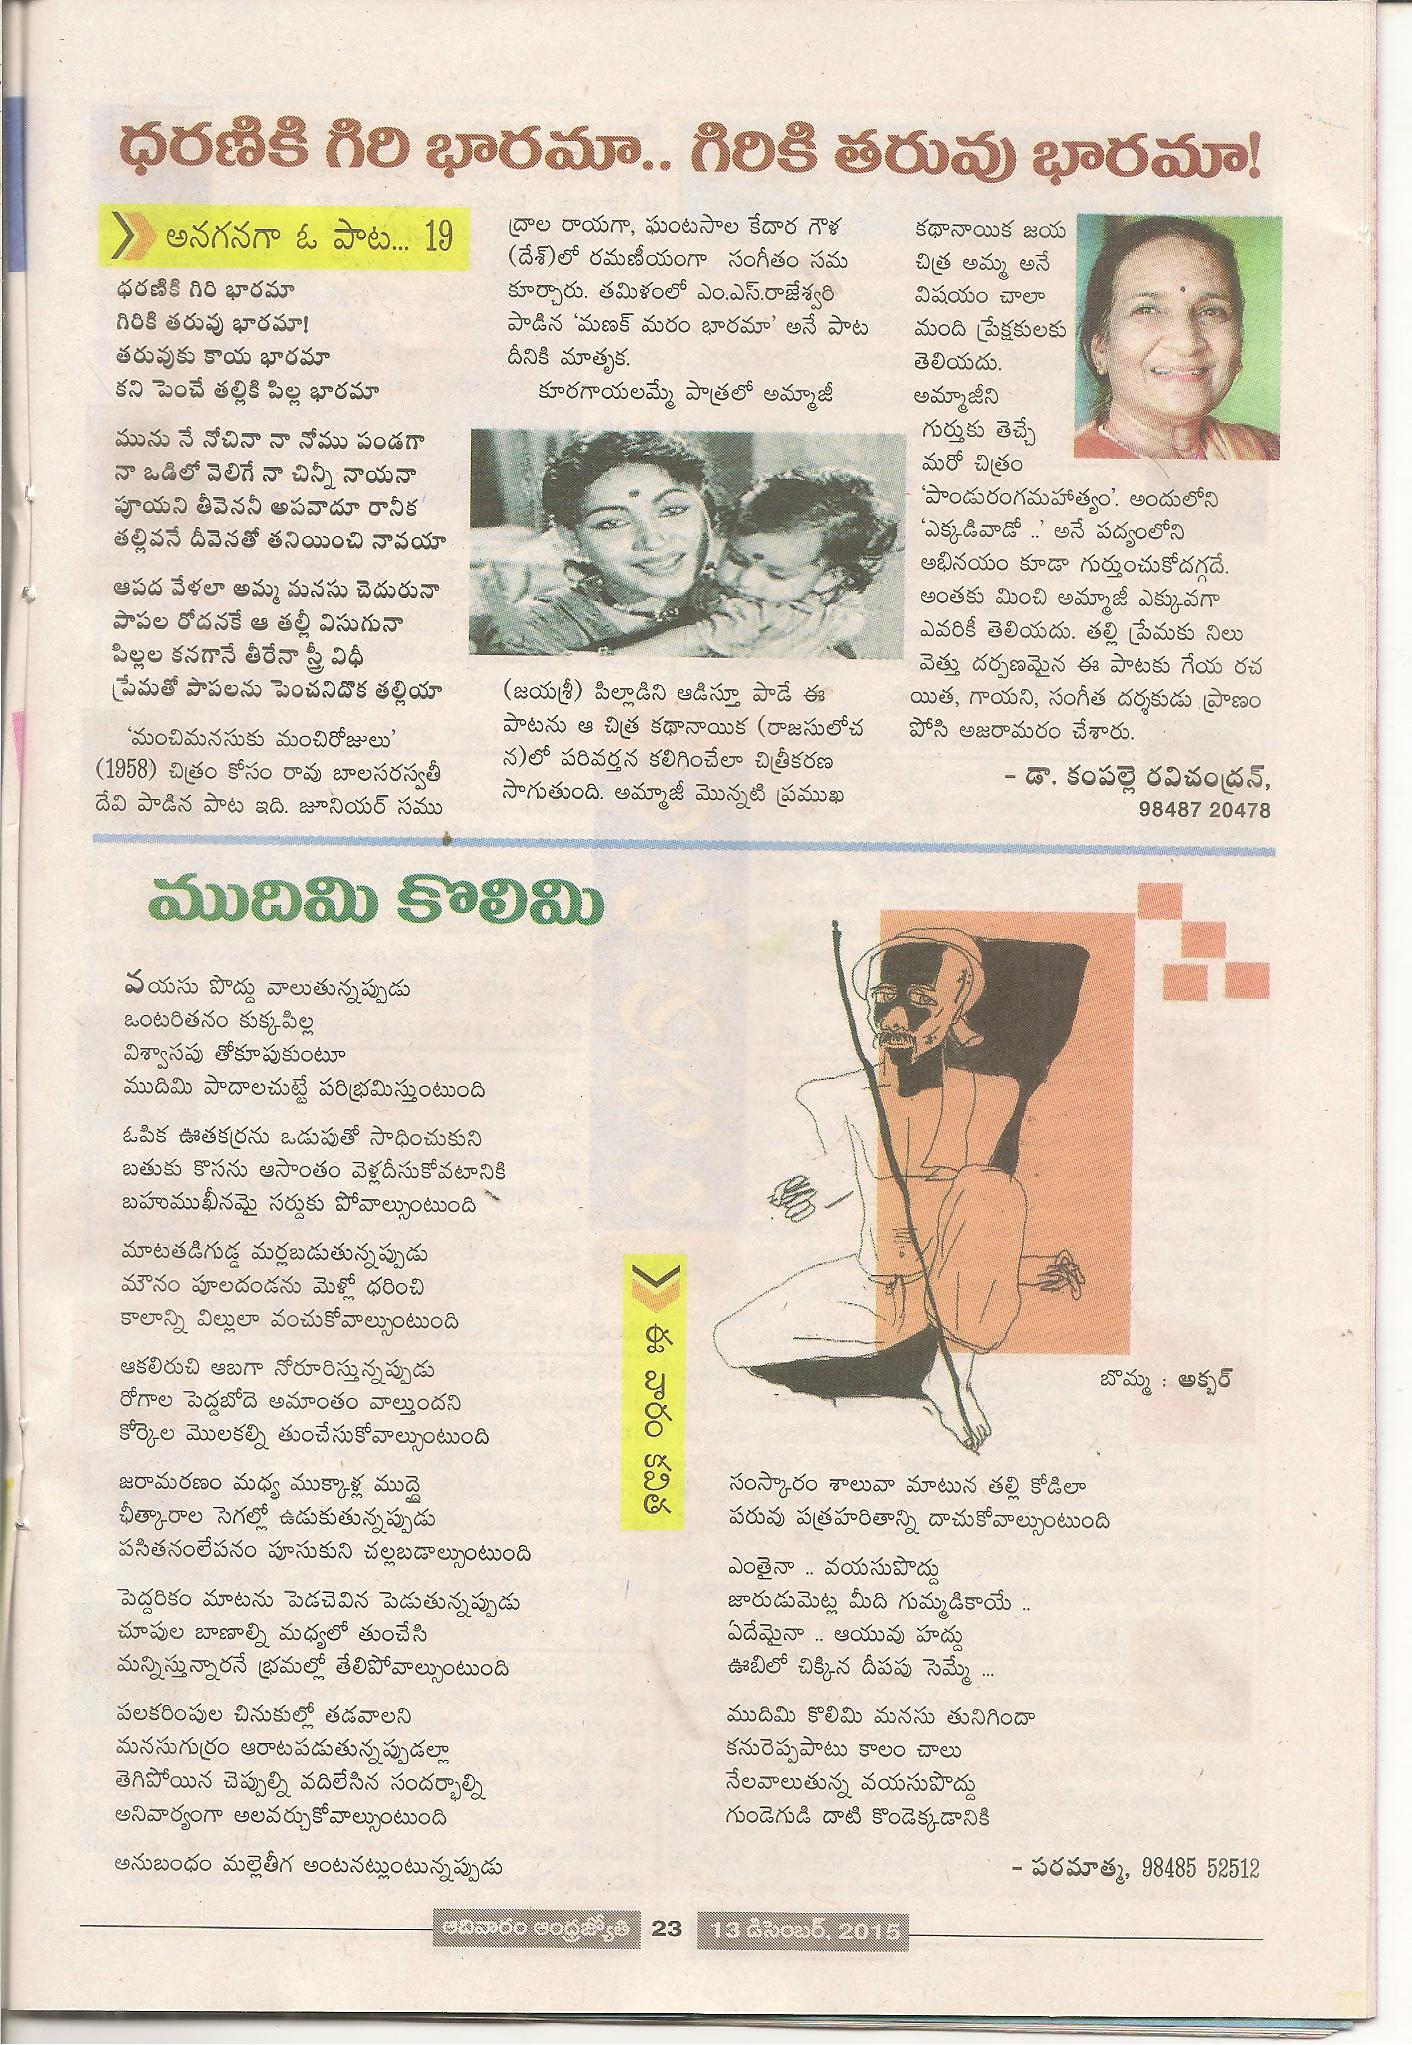 ధరణికి గిరి భారమా.. గిరికి తరువు భారమా!
అనగనగా ఓ పాట... 19
ధరణికి గిరి భారమా
గిరికి తరువు భారమా!
తరువుకు కాయ భారమా
కని పెంచే తల్లికి పిల్ల భారమా
మును నే నోచినా నా నోము పండగా
నా ఒడిలో వెలిగే నా చిన్నీ నాయనా
పూయని తీవెననీ అపవాదూ రానీక
తల్లివనే దీవెనతో తనియించి నావయా
ఆపద వేళలా అమ్మ మనసు చెదురునా
పాపల రోదనకే ఆ తల్లీ విసుగునా
పిల్లల కనగానే తీరేనా స్త్రీ విధీ
ప్రేమతో పాపలను పెంచనిదొక తల్లియా
'మంచిమనసుకు మంచిరోజులు'
(1958) చిత్రం కోసం రావు బాలసరస్వతీ
దేవి పాడిన పాట ఇది. జూనియర్ సము
ద్రాల రాయగా, ఘంటసాల కేదార గౌళ
(దేశ్)లో రమణీయంగా సంగీతం సమ
కూర్చారు. తమిళంలో ఎం.ఎస్.రాజేశ్వరి
పాడిన 'మణక్ మరం భారమా' అనే పాట
దీనికి మాతృక.
కూరగాయలమ్మే పాత్రలో అమ్మాజీ
(జయశ్రీ) పిల్లాడిని ఆడిస్తూ పాడే ఈ
పాటను ఆ చిత్ర కథానాయిక (రాజసులోచ
న)లో పరివర్తన కలిగించేలా చిత్రీకరణ
సాగుతుంది. అమ్మాజీ మొన్నటి ప్రముఖ
కథానాయిక జయ
చిత్ర అమ్మ అనే
విషయం చాలా
మంది ప్రేక్షకులకు
తెలియదు.
అమ్మాజీని
గుర్తుకు తెచ్చే
మరో చిత్రం
'పాండురంగమహాత్యం'. అందులోని
'ఎక్కడివాడో ..' అనే పద్యంలోని
అభినయం కూడా గుర్తుంచుకోదగ్గదే.
అంతకు మించి అమ్మాజీ ఎక్కువగా
ఎవరికీ తెలియదు. తల్లి ప్రేమకు నిలు
వెత్తు దర్పణమైన ఈ పాటకు గేయ రచ
యిత, గాయని, సంగీత దర్శకుడు ప్రాణం
పోసి అజరామరం చేశారు.
– డా. కంపల్లె రవిచంద్రన్,
98487 20478
ముదిమి కొలిమి
వయసు పొద్దు వాలుతున్నప్పుడు
ఒంటరితనం కుక్కపిల్ల
విశ్వాసపు తోకూపుకుంటూ
ముదిమి పాదాలచుట్టే పరిభ్రమిస్తుంటుంది
ఓపిక ఊతకర్రను ఒడుపుతో సాధించుకుని
బతుకు కొసను ఆసాంతం వెళ్లదీసుకోవటానికి
బహుముఖీనమై సర్దుకు పోవాల్సుంటుంది
మాటతడిగుడ్డ మర్లబడుతున్నప్పుడు
మౌనం పూలదండను మెళ్లో ధరించి
కాలాన్ని విల్లులా వంచుకోవాల్సుంటుంది
ఆకలిరుచి ఆబగా నోరూరిస్తున్నప్పుడు
రోగాల పెద్దబోదె అమాంతం వాల్తుందని
కోర్కెల మొలకల్ని తుంచేసుకోవాల్సుంటుంది
జరామరణం మధ్య ముక్కాళ్ల ముద్దై
ఛీత్కారాల సెగల్లో ఉడుకుతున్నప్పుడు
పసితనంలేపనం పూసుకుని చల్లబడాల్సుంటుంది
పెద్దరికం మాటను పెడచెవిన పెడుతున్నప్పుడు
చూపుల బాణాల్ని మధ్యలో తుంచేసి
మన్నిస్తున్నారనే భ్రమల్లో తేలిపోవాల్సుంటుంది
పలకరింపుల చినుకుల్లో తడవాలని
మనసుగుర్రం ఆరాటపడుతున్నప్పుడల్లా
తెగిపోయిన చెప్పుల్ని వదిలేసిన సందర్భాల్ని
అనివార్యంగా అలవర్చుకోవాల్సుంటుంది
అనుబంధం మల్లెతీగ అంటనట్లుంటున్నప్పుడు
ఈ వారం కవిత
బొమ్మ : అక్బర్
సంస్కారం శాలువా మాటున తల్లి కోడిలా
పరువు పత్రహరితాన్ని దాచుకోవాల్సుంటుంది
ఎంతైనా .. వయసుపొద్దు
జారుడుమెట్ల మీది గుమ్మడికాయే ..
ఏదేమైనా .. ఆయువు హద్దు
ఊబిలో చిక్కిన దీపపు సెమ్మే ...
ముదిమి కొలిమి మనసు తునిగిందా
కనురెప్పపాటు కాలం చాలు
నేలవాలుతున్న వయసుపొద్దు
గుండెగుడి దాటి కొండెక్కడానికి
– పరమాత్మ, 98485 52512
ఆదివారం ఆంధ్రజ్యోతి 23 13 డిసెంబర్, 2015